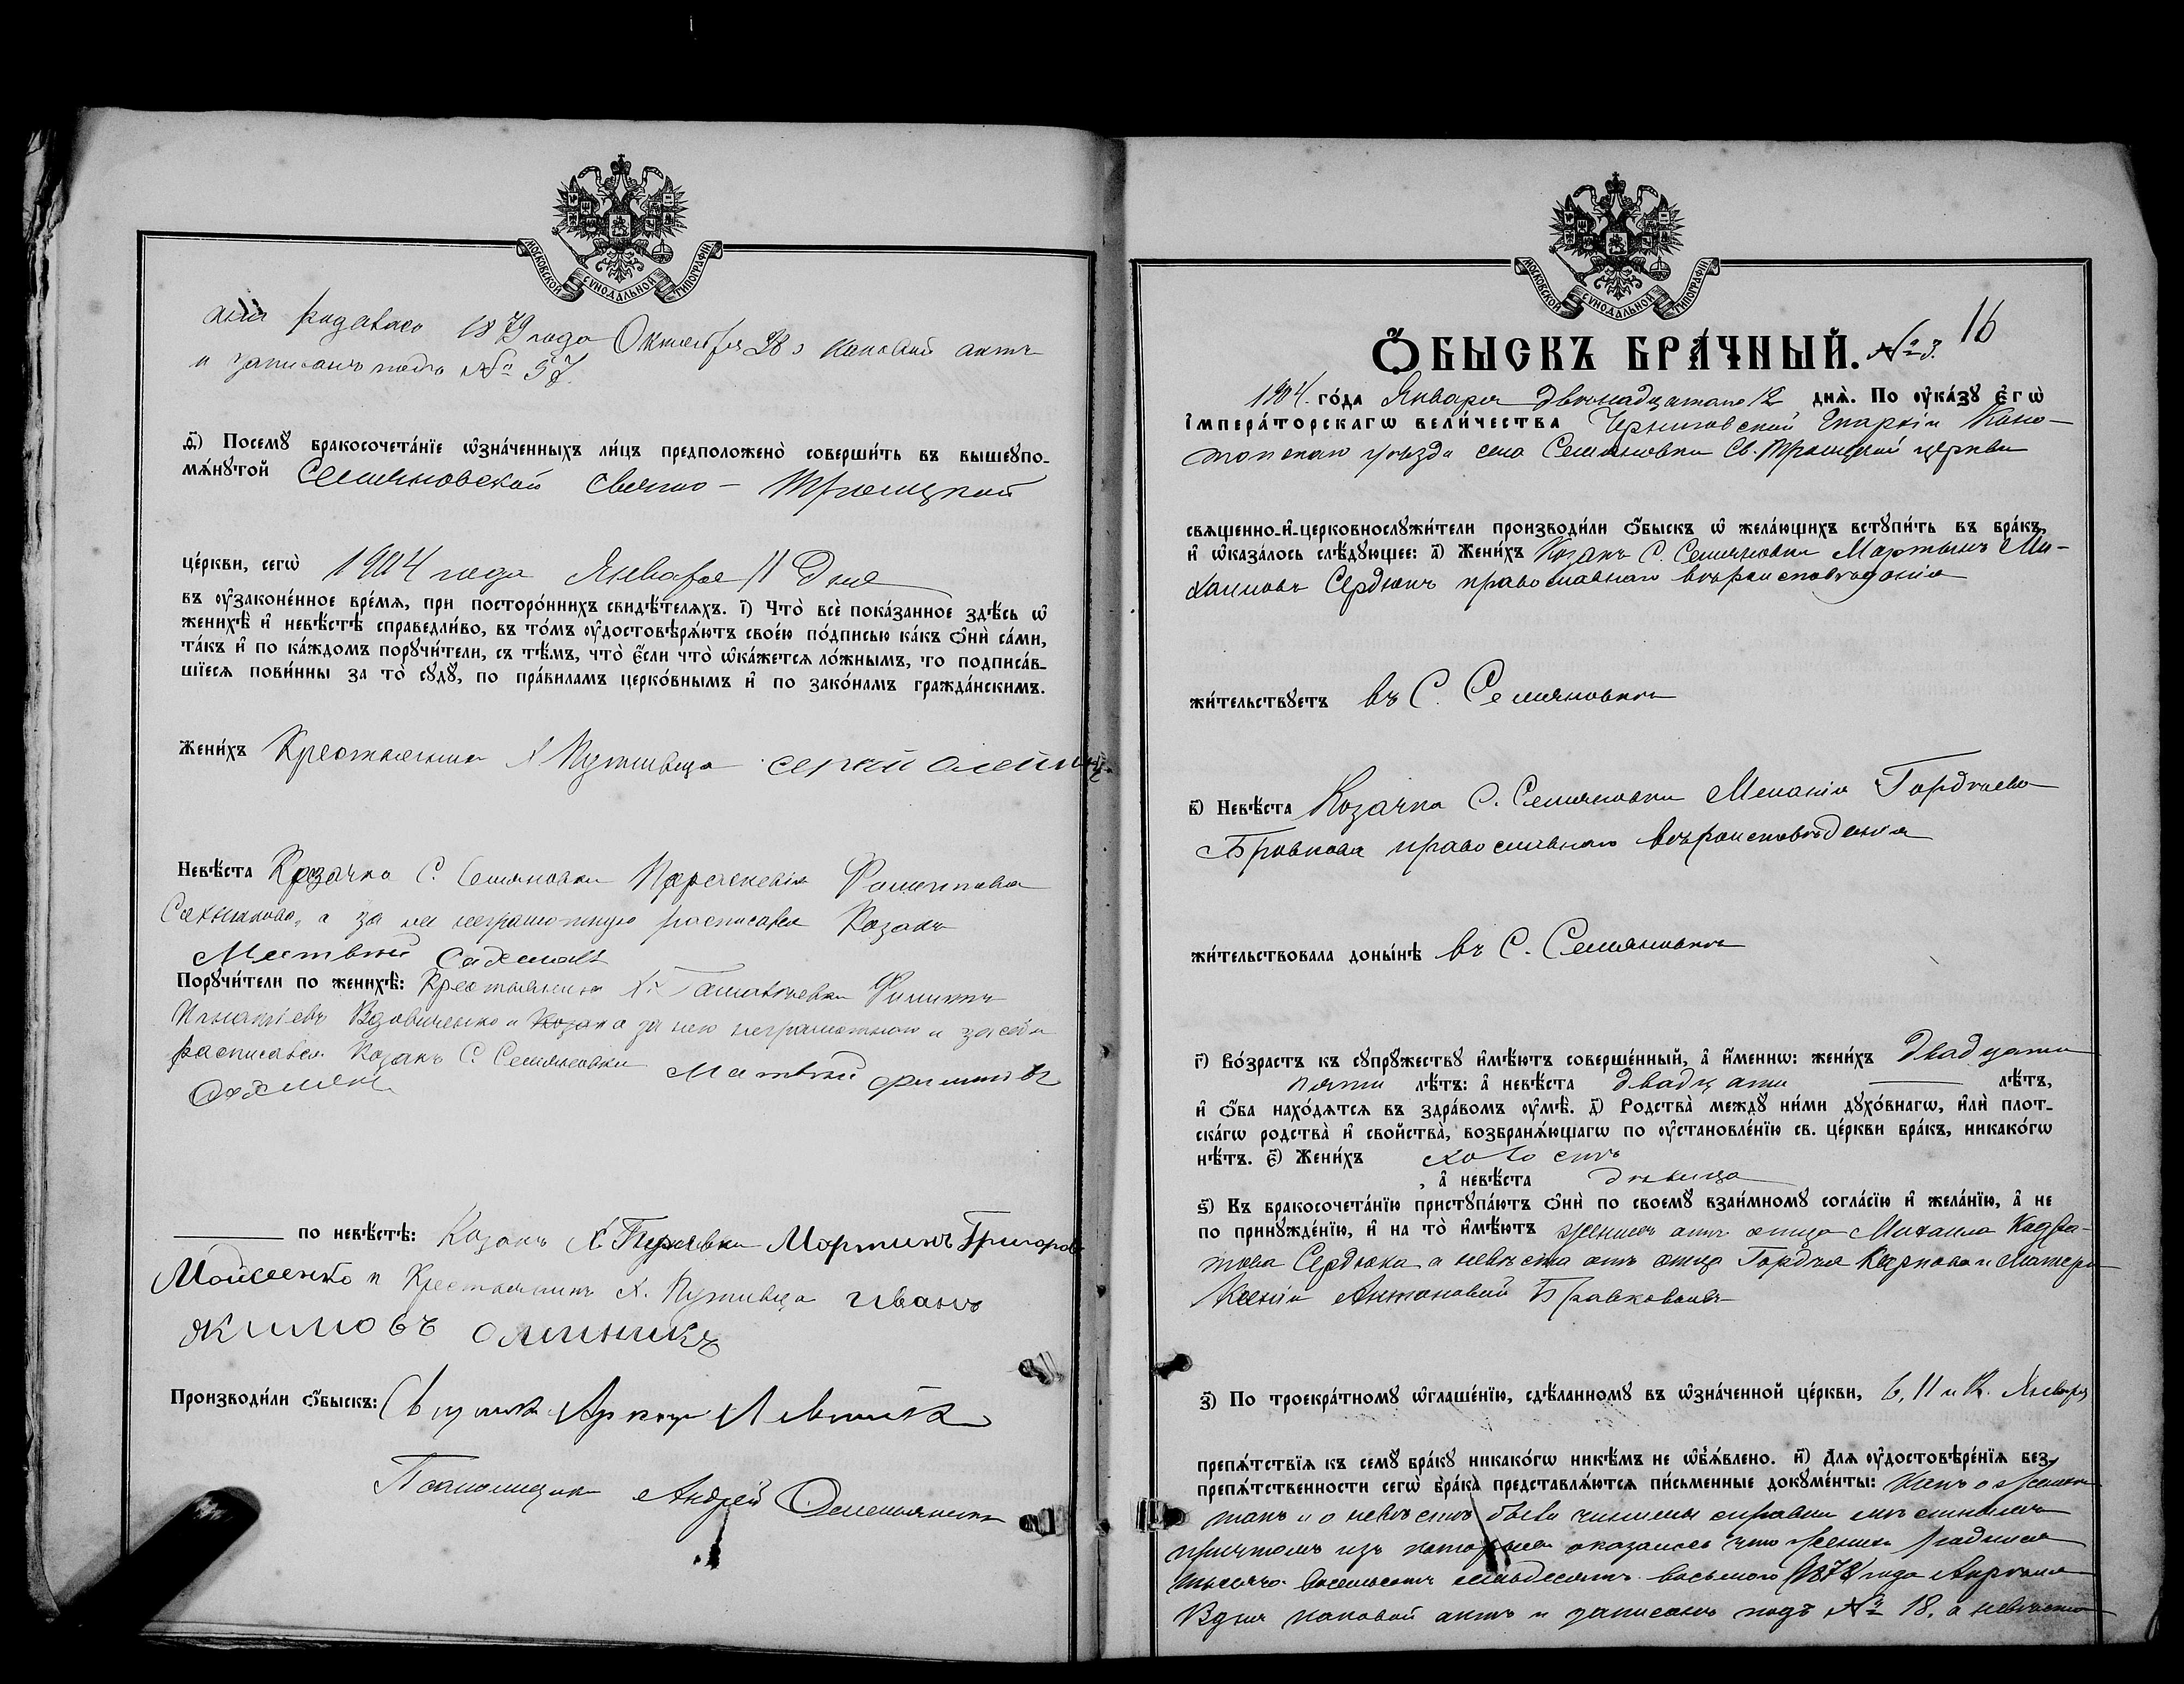 МОСКОВСКОЙ СѴНОДАЛЬНОЙ ТИПОГРАФІИ
родилась 1879 года Октября 28 э каковый актъ
и записанъ подъ № 57.
д҃) Посемꙋ бракосочета́нїе ѡ҆зна́ченныхъ ли́цъ предположено̀ соверши́ть въ вышеꙋпо-
мѧ́нꙋтой Семяновской Свято-Троицкой
це́ркви, сегѡ̀ 1904 года Января 11 Дня
въ ᲂу҆зако́ненное вре́мѧ, при посторо́ннихъ свидѣ́телѧхъ. і҃) Что̀ всѐ пока́занное здѣ́сь ѡ҆
женихѣ̀ и҆ невѣ́стѣ справедли́во, въ то́мъ ᲂу҆достовѣрѧ́ютъ свое́ю по́дписью ка́къ ѻ҆нѝ са́ми,
та́къ и҆ по ка́ждомъ порꙋчи́тели, съ тѣ́мъ, что̀ є҆́сли что̀ ѡ҆ка́жетсѧ ло́жнымъ, то подписа́в-
шїесѧ пови́нны за то̀ сꙋдꙋ̀, по пра́виламъ церко́внымъ и҆ по зако́намъ гражда́нскимъ.
Жени́хъ Крестьянинъ Х Путивца сергий олейник
Невѣ́ста Козачка С. Семяновки Параскевія Филиппова
а за нея неграмотную расписался Козакъ
Матвей
Порꙋчи́тели по женихѣ̀: Крестьянинъ Х. Филиппъ
Игнатіевъ Вдовиченко и за него неграмотного и за себя
расписался Козакъ С. Семяновки Матвей филиповъ
по невѣ́стѣ: Козакъ Х. Мартинъ Григоровъ
Мойсеенко и Крестьянинъ Х. Путивца Иванъ
якимовъ олиникъ
Производи́ли ѻ҆́быскъ:
Псаломщикъ Андрей
МОСКОВСКОЙ СѴНОДАЛЬНОЙ ТИПОГРАФІИ
16
Ѻ҆́БЫСКЪ БРА́ЧНЫЙ. №3.
1904. го́да Января двенадцатаго 12 днѧ̀. По ᲂу҆ка́зꙋ є҆гѡ̀
і҆мпера́торскагѡ вели́чества Черниговской Епархіи Коно-
топскаго уѣзда села Семяновки Св. Троицкой церкви
свѧщенно-и҆-церковнослꙋжи́тели производи́ли ѻ҆́быскъ ѡ҆ жела́ющихъ встꙋпи́ть въ бра́къ,
и҆ ѡ҆каза́лось слѣ́дꙋющее: а҃) Жени́хъ Козакъ С. Семяновки Мартынъ Ми-
хаиловъ Сердюкъ православнаго вѣроисповѣданія
жи́тельствꙋетъ въ С. Семяновкѣ
в҃) Невѣ́ста Козачка С. Семяновки Меланія Гордѣева
Бровкова православнаго вѣроисповѣданія
жи́тельствовала доны́нѣ въ С. Семяновкѣ
г҃) Во́зрастъ къ сꙋпрꙋ́жествꙋ и҆мѣ́ютъ соверше́нный, а҆ и҆́меннѡ: жени́хъ двадцати
пяти лѣ́тъ: а҆ невѣ́ста двадцати лѣ́тъ,
и҆ ѻ҆́ба нахо́дѧтсѧ въ здра́вомъ ᲂу҆мѣ̀. д҃) Родства̀ междꙋ̀ ни́ми дꙋхо́внагѡ, и҆лѝ плот-
ска́гѡ родства̀ и҆ сво́йства̀, возбранѧ́ющагѡ по ᲂу҆становле́нїю св. це́ркви бра́къ, никако́гѡ
нѣ́тъ. є҃) Жени́хъ холостъ
, а҆ невѣ́ста дѣвица
ѕ҃) Къ бракосочета́нїю пристꙋпа́ютъ ѻ҆нѝ по своемꙋ̀ взаи́мномꙋ согла́сїю и҆ жела́нїю, а҆ не
по принꙋжде́нїю, и҆ на то̀ и҆мѣ́ютъ женихъ отъ отца Михаила
Сердюка а невѣста отъ отца Гордѣя Карпова и матери
Ксеніи Антоновой
з҃) По троекра́тномꙋ ѡ҆глаше́нїю, сдѣ́ланномꙋ въ ѡ҆зна́ченной це́ркви, 6, 11 и 12. Января
препѧ́тствїѧ къ семꙋ̀ бра́кꙋ никако́гѡ никѣ́мъ не ѡ҆б̾ѧ́влено. и҃) Длѧ ᲂу҆достовѣре́нїѧ без-
препѧ́тственности сегѡ̀ бра́ка представлѧ́ютсѧ пи́сьменные докꙋме́нты: Какъ о
и о невѣстѣ были чинимы справки
причтомъ изъ которыхъ оказалось что женихъ родился
тысяча восемьсотъ семьдесятъ восьмого 1878 года Апрѣля
дня каковой актъ и записанъ подъ № 18. а невѣста